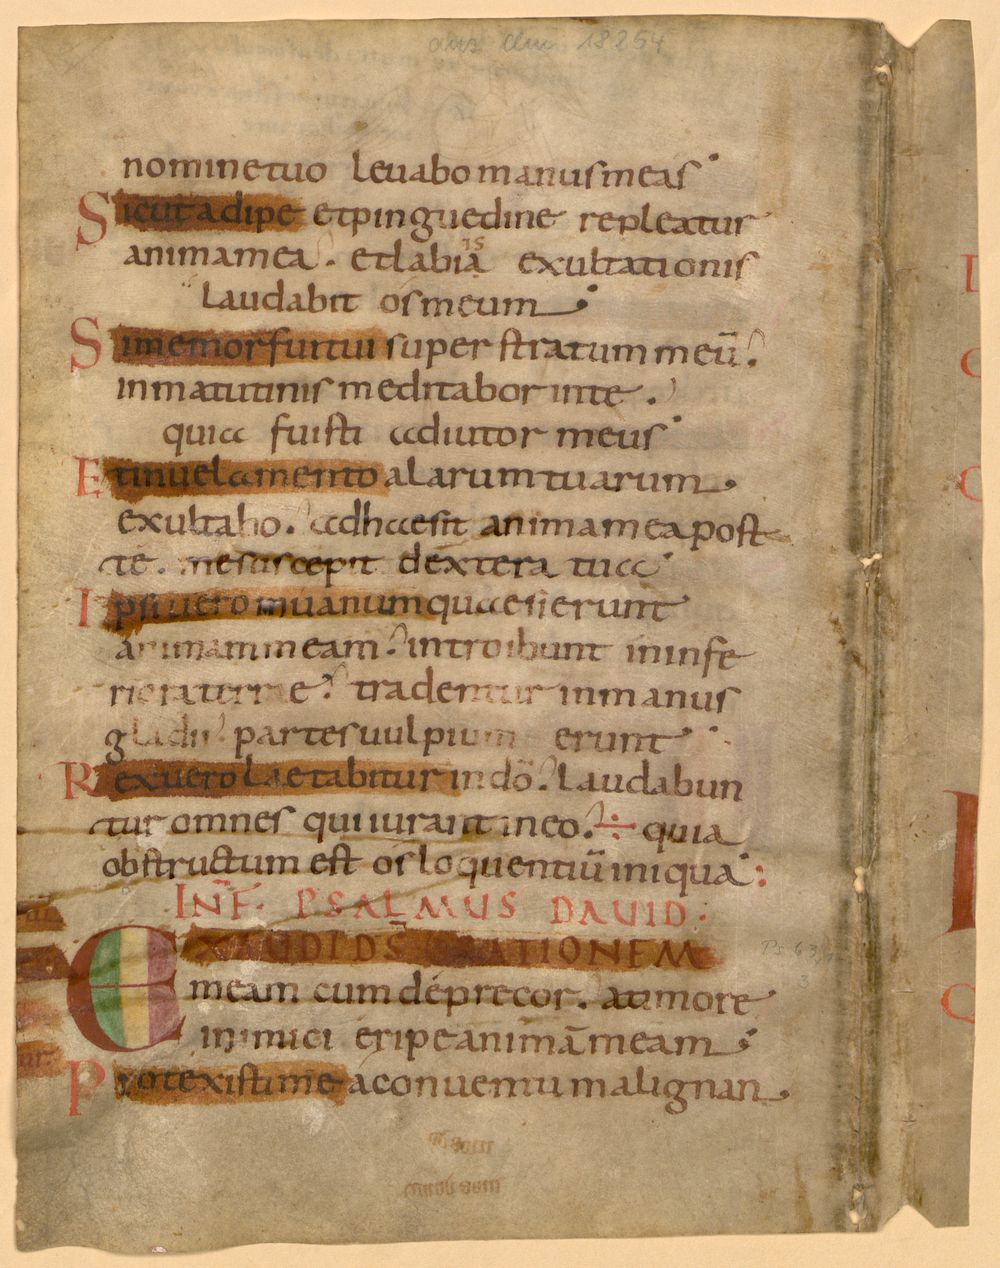 aus Clm 18254
nomine tuo levabo manus meas
Sicut adipe et pinguedine repleatur
anima mea. et labia is exultationis
laudabit os meum
Si memor fui tui super stratum meū.
in matutinis meditabor in te.
quia fuisti adiutor meus
Et in velamento alarum tuarum
exultabo. adhaesit anima mea post
te. me suscepit dextera tua
Ipsi vero in vanum quaesierunt
animam meam. introibunt in infe
riora terrae. tradentur in manus
gladii partes vulpium erunt
Rex vero laetabitur in dō. laudabun
tur omnes qui iurant in eo. ÷ quia
obstructum est os loquentiū iniqua:
INF̄. PSALMUS DAVID.
EXAUDI DS̄ ORATIONEM
meam cum deprecor. a timore
inimici eripe animā meam
Protexisti me a conventu malignan
Ps 63,1-
3